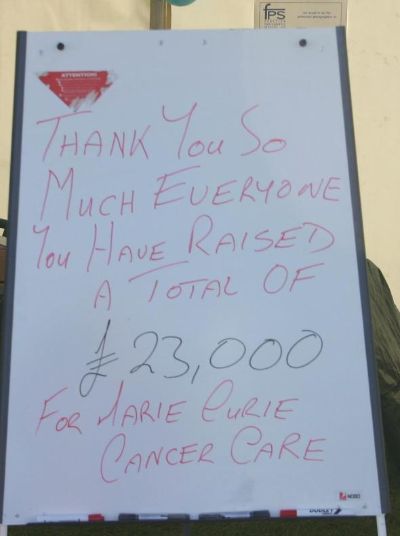 fps
ATTENTION!
THANK YOU SO
MUCH EVERYONE
YOU HAVE RAISED
A TOTAL OF
£23,000
FOR MARIE CURIE
CANCER CARE
NOBO